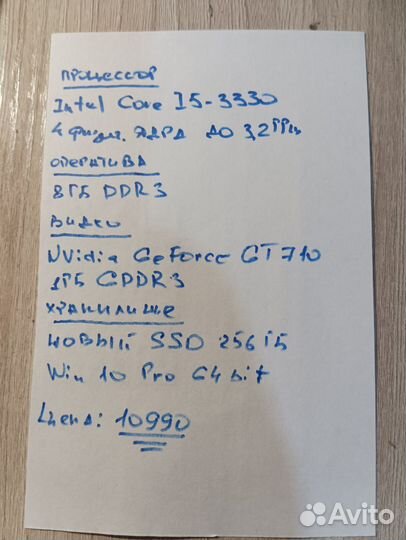 ПРОЦЕССОР
Intel Core I5-3330
4 физич. ядра до 3,2 ГГц
ОПЕРАТИВА
8ГБ DDR3
ВИДЕО
NVidia GeForce GT710
1ГБ GDDR3
ХРАНИЛИЩЕ
НОВЫЙ SSD 256ГБ
Win 10 Pro 64 bit
Цена: 10990
Avito